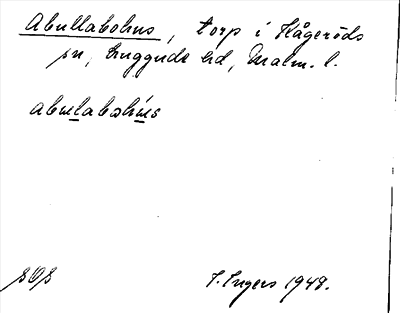 Abullabohus, torp i Kågeröds
sn, Luggude hd, Malm. l.
abulabohus
sOs
I. Ingers 1949.